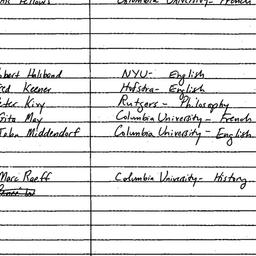 Fellows Columbia University - French
Halsband NYU - English
Keener Hofstra - English
Kivy Rutgers - Philosophy
Gita May Columbia University - French
John Middendorf Columbia University - English
Marc Raeff Columbia University - History